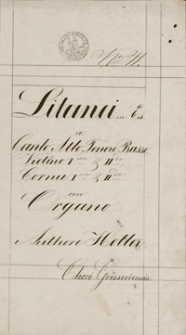 Litania in Es
a
Canto Alto Tenore Basso
Violino 1mo & 2do
Cornui 1mo & 2do
con
Organo
Authore Holler
Chori